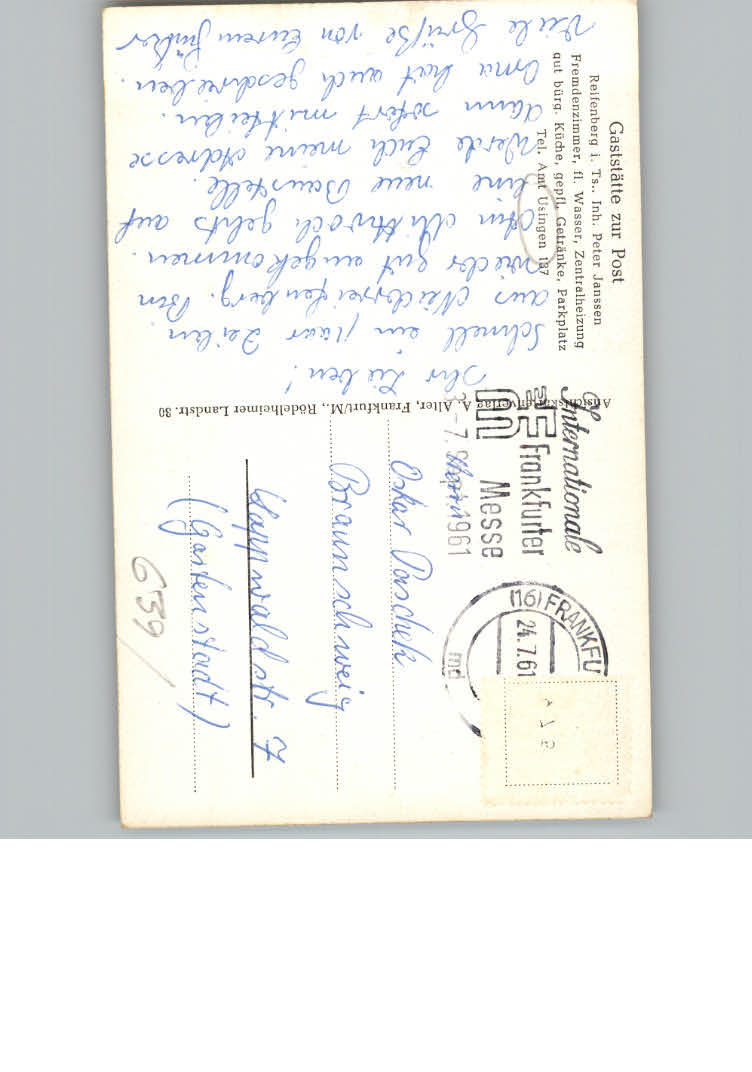 Gaststätte zur Post
Reifenberg i. Ts., Inh. Peter Janssen
Fremdenzimmer, fl. Wasser, Zentralheizung
gut bürg. Küche, gepfl. Getränke, Parkplatz
Tel. Amt Usingen 137
Ihr Lieben!
Schnell ein paar Zeilen
aus Niederreifenberg. Bin
wieder gut angekommen.
Am Mittwoch gehts auf
eine neue Baustelle.
Werde Euch meine Adresse
dann sofort mitteilen.
Oma hat auch geschrieben.
Viele Grüße von Eurem
Ansichtskartenverlag A. Alter, Frankfurt/M., Rödelheimer Landstr. 30
Internationale
Frankfurter
Messe
-7. Sept. 1961
(16) FRANKFU
24.7.61
md
Oskar Paschek
Braunschweig
Lappwaldstr. 7
(Gartenstadt)
639/